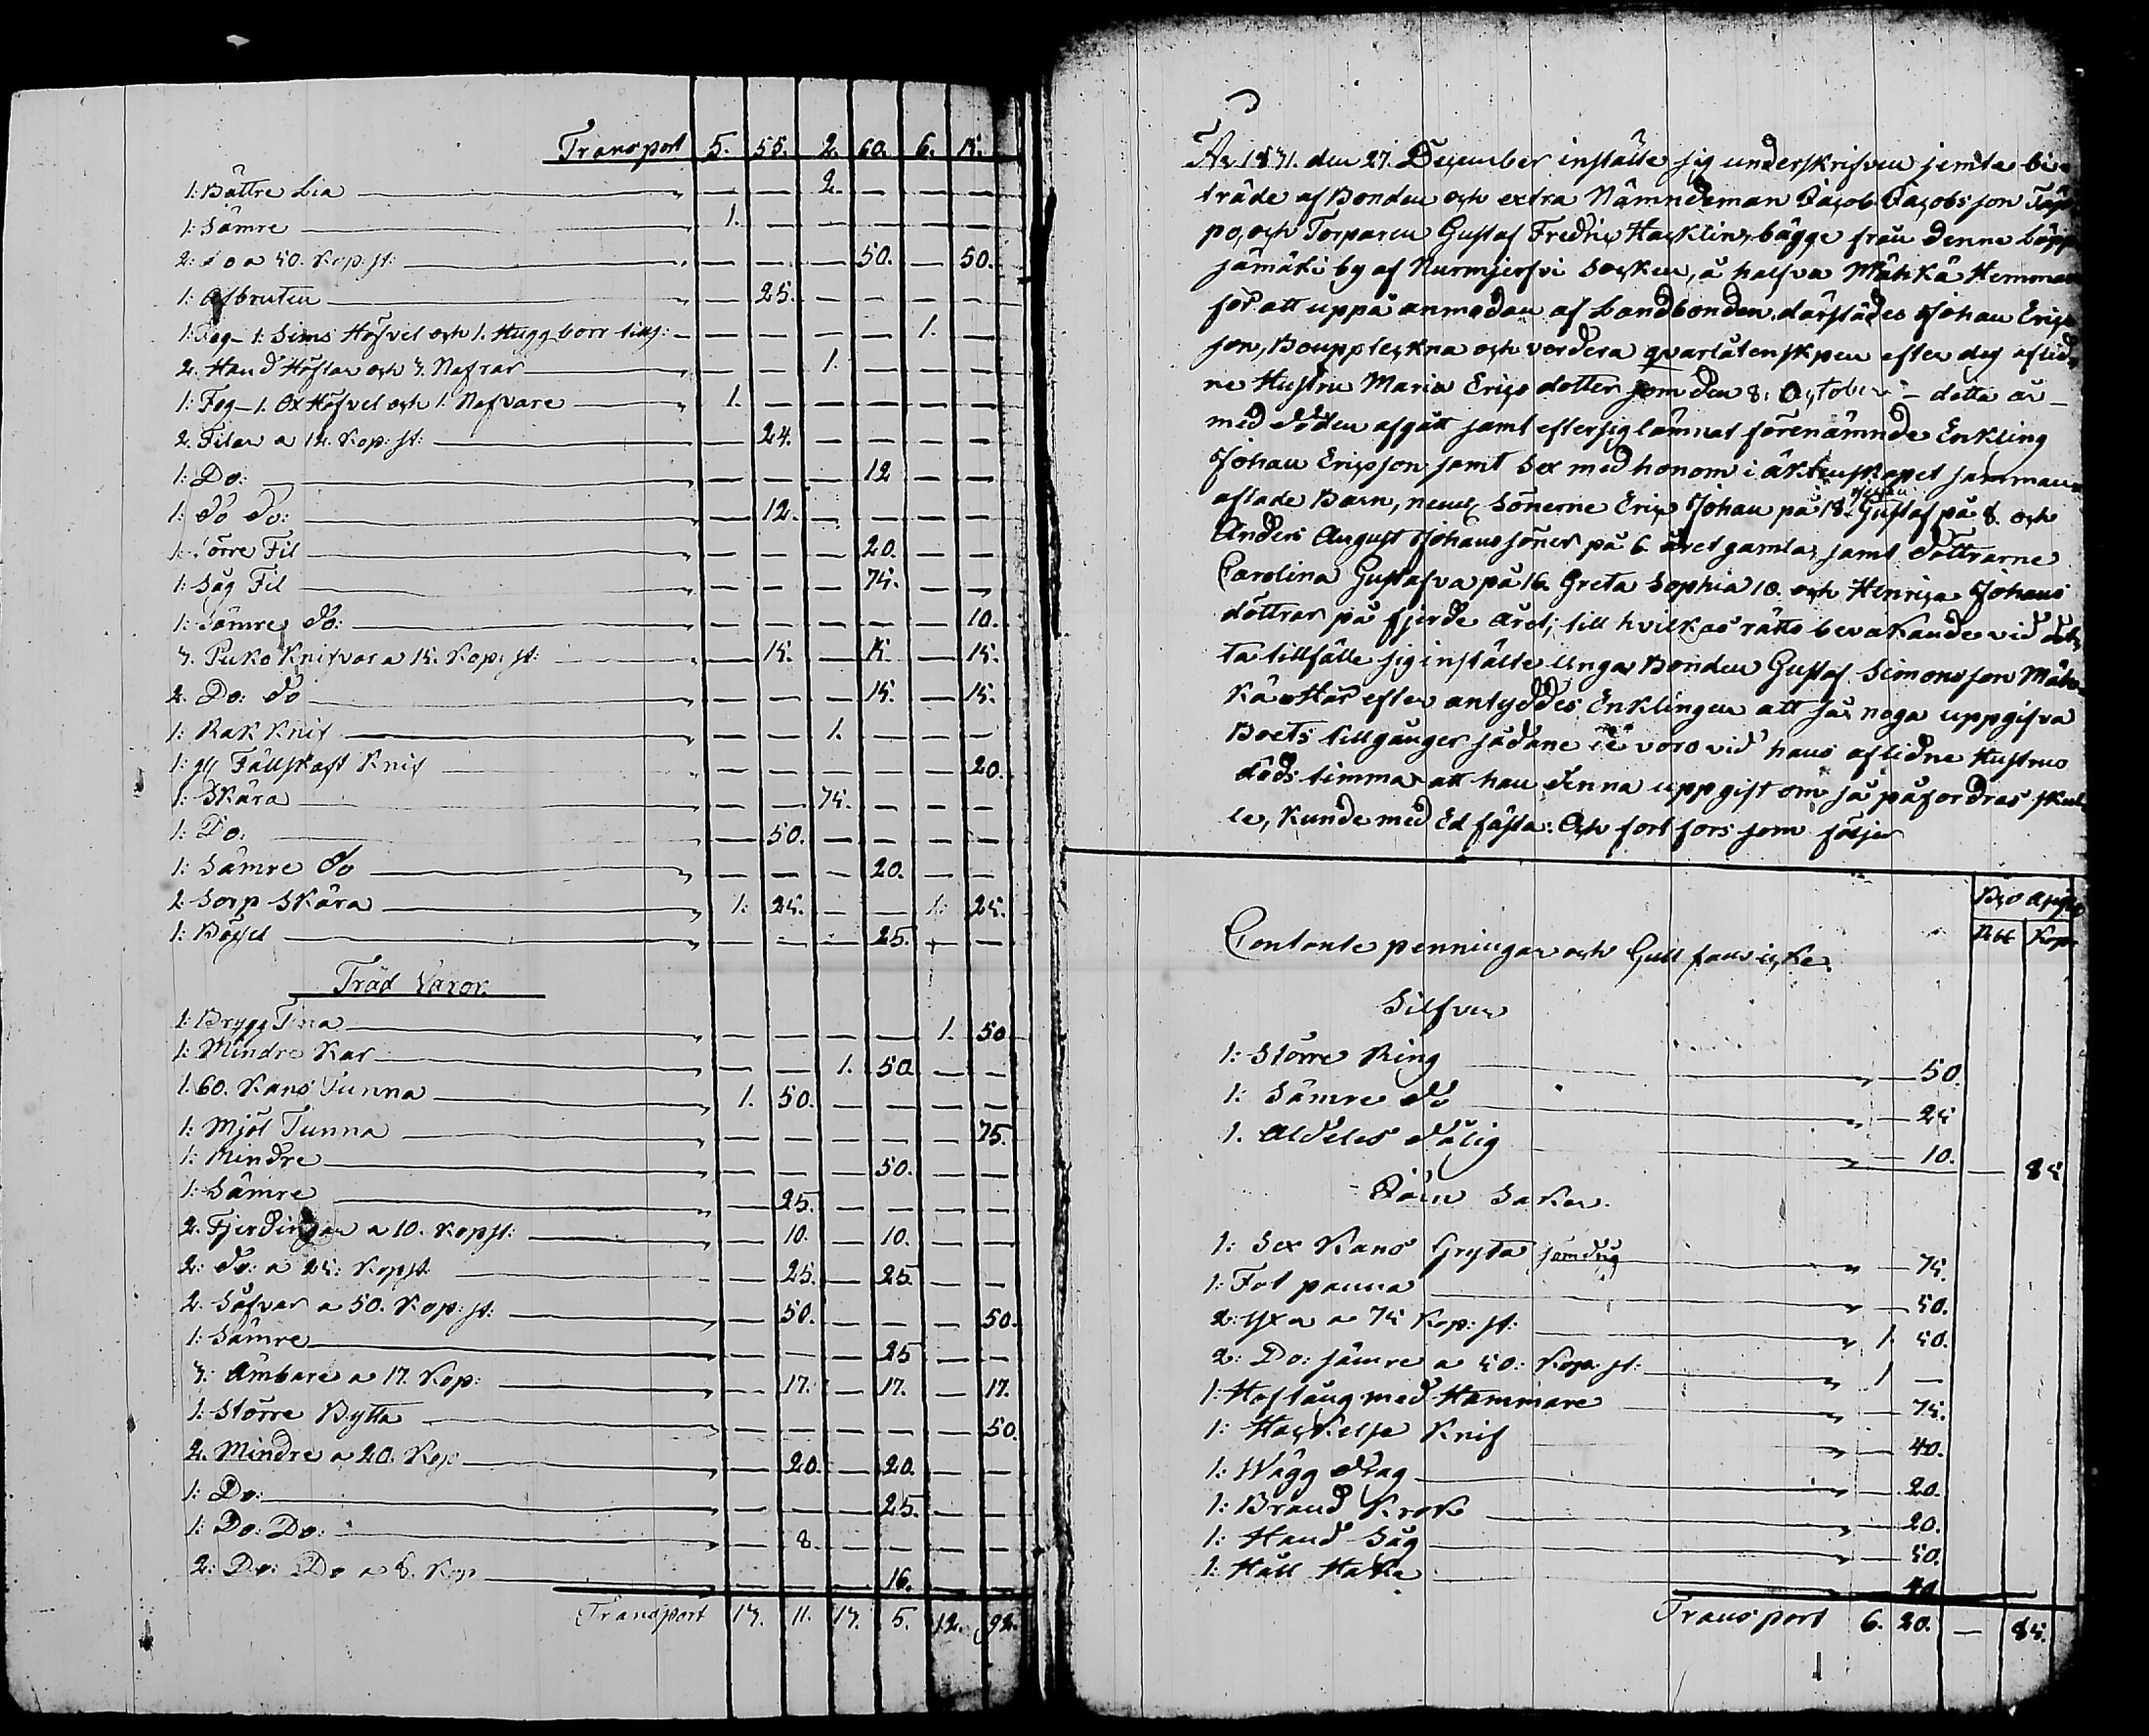 Transport 5. 55. 2. 60. 6. 15.
1: Bättre Lia — — 2. — — —
1: Sämre 1. — — — — —
2: do a 50. Kop: st: — — — 50. — 50.
1: Afbruten — 25. — — — —
1: Feg- 1: Sims Höfvel och 1. Hugg borr tills: — — — — 1. —
2. Hand Höflar och 3. Nafrar — — 1. — — —
1: Feg- 1. Ox Höfvel och 1. Nafvare 1. — — — — —
2. Filar a 12. Kop: st: — 24. — — — —
1: Do: — — — 12 — —
1: do do: — 12. — — — —
1: Större Fil — — — 20. — —
1: Såg Fil — — — 75. — —
1: Sämre do: — — — — — 10.
3. Puko Knifvar a 15. Kop: st: — 15. — 15. — 15.
2. Do: do — — — 15. — 15.
1: Rak Knif — — 1. — — —
1: gl Fällskaft Knif — — — — — 20.
1: Skära — — 75. — — —
1: Do: — 50. — — — —
1: Sämre do — — — 20. — —
2. Sorp Skära 1: 25. — — 1: 25.
1: Bössel — — — 25. — —
Träd Varor.
1: Brygg Tina — — — — 1. 50
1: Mindre Kar — — 1. 50. — —
1. 60. Kans Tunna 1. 50. — — — —
1: Mjöl Tunna — — — — — 75.
1: Mindre — — — 50. — —
1: Sämre — 25. — — — —
2. Fjerdingar a 10. Kop st: — 10. — 10. — —
2: do: a 25: Kop st: — 25. — 25. — —
2. Såfvar a 50. Kop: st: — 50. — — — 50.
1: Sämre — — — 25 — —
3: Ämbare a 17. Kop: — 17. — 17. — 17.
1: Större Bytta — — — — — 50.
2. Mindre a 20. Kop: — 20. — 20. — —
1: Do: — — — 25. — —
1: Do: Do: — 8. — — — —
2: Do: Do a 8. Kop — — — 16. — —
Transport 13. 11. 13. 5. 12. 92.
År 1831. den 27. December instälte sig underskrifven jemte bi-
träde af Bonden och extra Nämndeman Jacob Jacobsson Tåp
po, och Torparen Gustaf Fredric Hacklin, bägge från denne Lopp
jämäki by af Nurmjerfvi Socken, å halfva Mähkä Hemman
för att uppå anmodan af Landbonden därstädes Johan Erics
son, Bouppteckna och vordera qvarlåtenskpen efter dess aflid
ne Hustru Maria Ericsdotter som den 8: October - detta år -
med döden afgått samt efter sig lämnat förenämnde Enkling
Johan Ericsson samt Sex med honom i äktenskapet samman
aflade Barn, neml. Sönerne Eric Johan på 18. Gustaf på 8. och
Anders August Johanssöner på 6. året gamla, samt döttrarne
Carolina Gustafva på 16. Greta Sophia 10. och Henrica Johans
döttrar på fjerde året; till hvilkas rätts bevakande vid det
ta tillfälle sig instälte Unga Bonden Gustaf Simonsson Mäh-
kä Här efter antyddes Enklingen att så noga uppgifva
Boets tillgångar sådane de voro vid hans aflidna Hustrus
döds timma, att han denna uppgift om så påfordras skul
le, kunde med Ed fästa: Och fort fors som följer
Bco Assgr
Rbl Kop
Contante penningar och Gull fans icke.
Silfver
1: Större Ring — 50.
1: Sämre do — 25
1. Aldeles dålig — 10. — 85
Järn Saker.
1: Sex Kans Gryta — 75.
1: Fot panna — 50.
2: Yxa a 75 Kop: st: 1 50.
2: Do: sämre a 50: Kop: st: 1 —
1: Hoftång med Hammare — 75.
1: Hackelse Knif — 40.
1: Wägg drag — 20.
1: Brand Krok — 20.
1: Hand Såg — 50.
1: Häll Hacka — 40
Transport 6. 20. — 85.